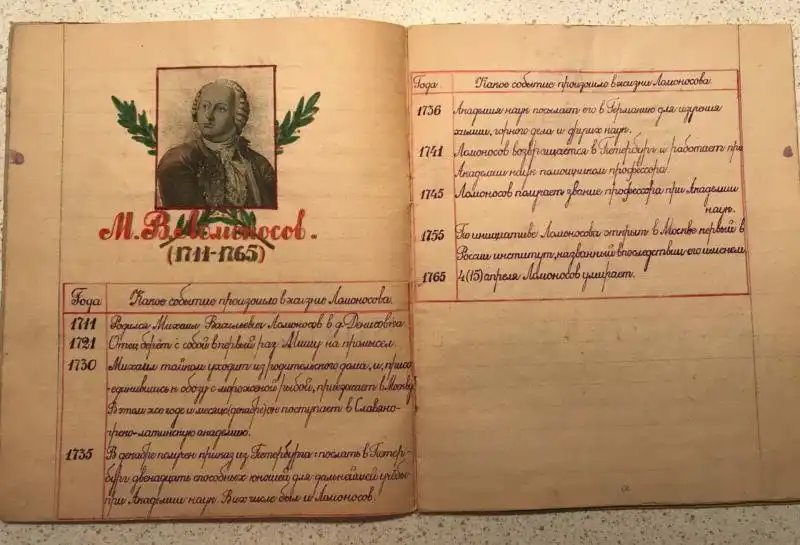 М. В. Ломоносов.
(1711-1765)
Года Какое событие произошло в жизни Ломоносова.
1711 Родился Михаил Васильевич Ломоносов в д. Денисовка.
1721 Отец берёт с собой в первый раз Мишу на промысел.
1730 Михаил тайком уходит из родительского дома, и, присо-
единившись к обозу с мороженой рыбой, приезжает в Москву.
В этом же годе и месяце (декабре) он поступает в Славяно-
греко-латинскую академию.
1735 В декабре получен приказ из Петербурга: послать в Петер-
бург двенадцать способных юношей для дальнейшей учёбы
при Академии наук. В их числе был и Ломоносов.
Года Какое событие произошло в жизни Ломоносова.
1736 Академия наук посылает его в Германию для изучения
химии, горного дела и других наук.
1741 Ломоносов возвращается в Петербург и работает при
Академии наук помощником профессора.
1745 Ломоносов получает звание профессора при Академии
наук.
1755 По инициативе Ломоносова открыт в Москве первый в
России институт, названный впоследствии его именем.
1765 4 (15) апреля Ломоносов умирает.